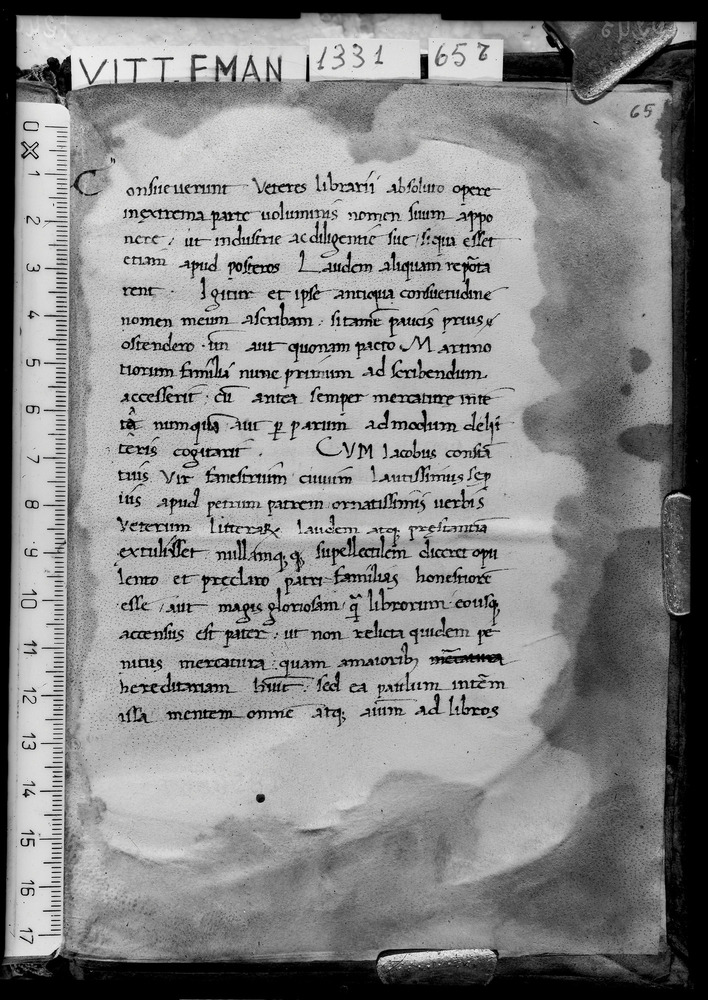 VITT. EMAN 1331 657
65
Consueverunt Veteres librarii absoluto opere
in extrema parte voluminis nomen suum appo
nere, ut industrie ac diligentie sue siqua esset
etiam apud posteros Laudem aliquam reportā
rent. Igitur et ipse antiqua consuetudine
nomen meum ascribam. si tamē paucis prius
ostendero. un aut quonam pacto Martino
tiorum familia nunc primum ad scribendum
accesserit. cū antea semper mercature inte
ta numquā aut p parum admodum de
teris cogitarit. CVM Iacobus constā
tius Vir fanestrium civium Lautissimus sep
ius apud petrum patrem ornatissimis verbis
Veterum litterarꝝ laudem atq; prestantiā
extulisset nullamq; supellectilem diceret opu
lento et preclaro patri familias honestiorē
esse, aut magis gloriosam q̄ librorum eousq;
accensus est pater. ut non relicta quidem pe
nitus mercatura quam amaiorib;
hereditariam huit. sed ea paulum intēm
issa mentem omnē atq; aīum ad libros
0 1 2 3 4 5 6 7 8 9 10 11 12 13 14 15 16 17